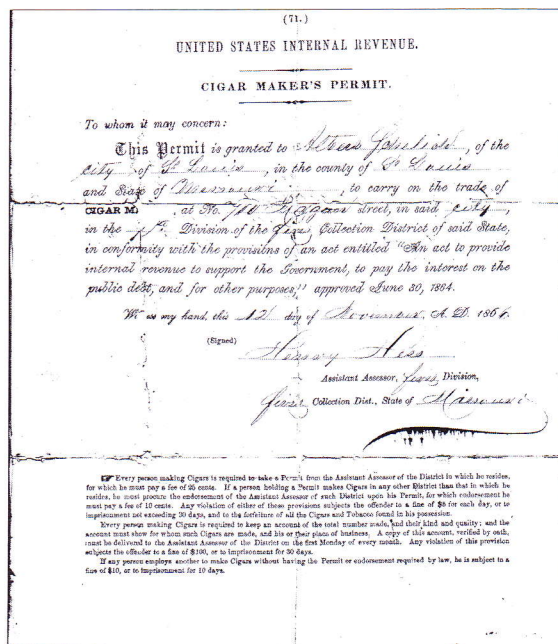 (71.)
UNITED STATES INTERNAL REVENUE.
CIGAR MAKER'S PERMIT.
To whom it may concern:
This Permit is granted to , of the
city of St Louis , in the county of St Louis
and State of Missouri , to carry on the trade of
CIGAR M , at No. street, in said city ,
in the Division of the first Collection District of said State,
in conformity with the provisilns of an act entitled "An act to provide
internal revenue to support the Government, to pay the interest on the
public debt, and for other purposes," approved June 30, 1864.
Wi ess my hand, this 12 day of November, A. D. 186
(Signed)
Henry Hess
Assistant Assessor, first Division,
first Collection Dist., State of Missouri
☞ Every person making Cigars is required to take a Permit from the Assistant Assessor of the District in which he resides,
for which he must pay a fee of 25 cents. If a person holding a Permit makes Cigars in any other District than that in which he
resides, he must procure the endorsement of the Assistant Assessor of such District upon his Permit, for which endorsement he
must pay a fee of 10 cents. Any violation of either of these provisions subjects the offender to a fine of $5 for each day, or to
imprisonment not exceeding 30 days, and to the forfeiture of all the Cigars and Tobacco found in his possession.
Every person making Cigars is required to keep an account of the total number made, and their kind and quality; and the
account must show for whom such Cigars are made, and his or their place of business. A copy of this account, verified by oath,
must be delivered to the Assistant Assessor of the District on the first Monday of every month. Any violation of this provision
subjects the offender to a fine of $100, or to imprisonment for 30 days.
If any person employs another to make Cigars without having the Permit or endorsement required by law, he is subject to a
fine of $10, or to imprisonment for 10 days.